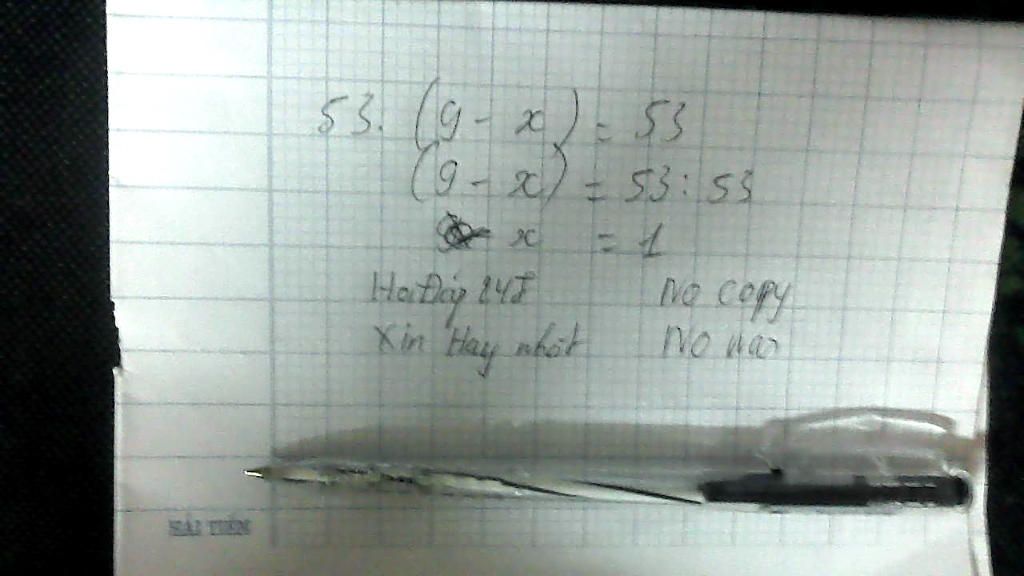 53. (9 - x) = 53
(9 - x) = 53 : 53
x = 1
HoiĐáp 247 No copy
Xin Hay nhất No
HẢI TIẾN